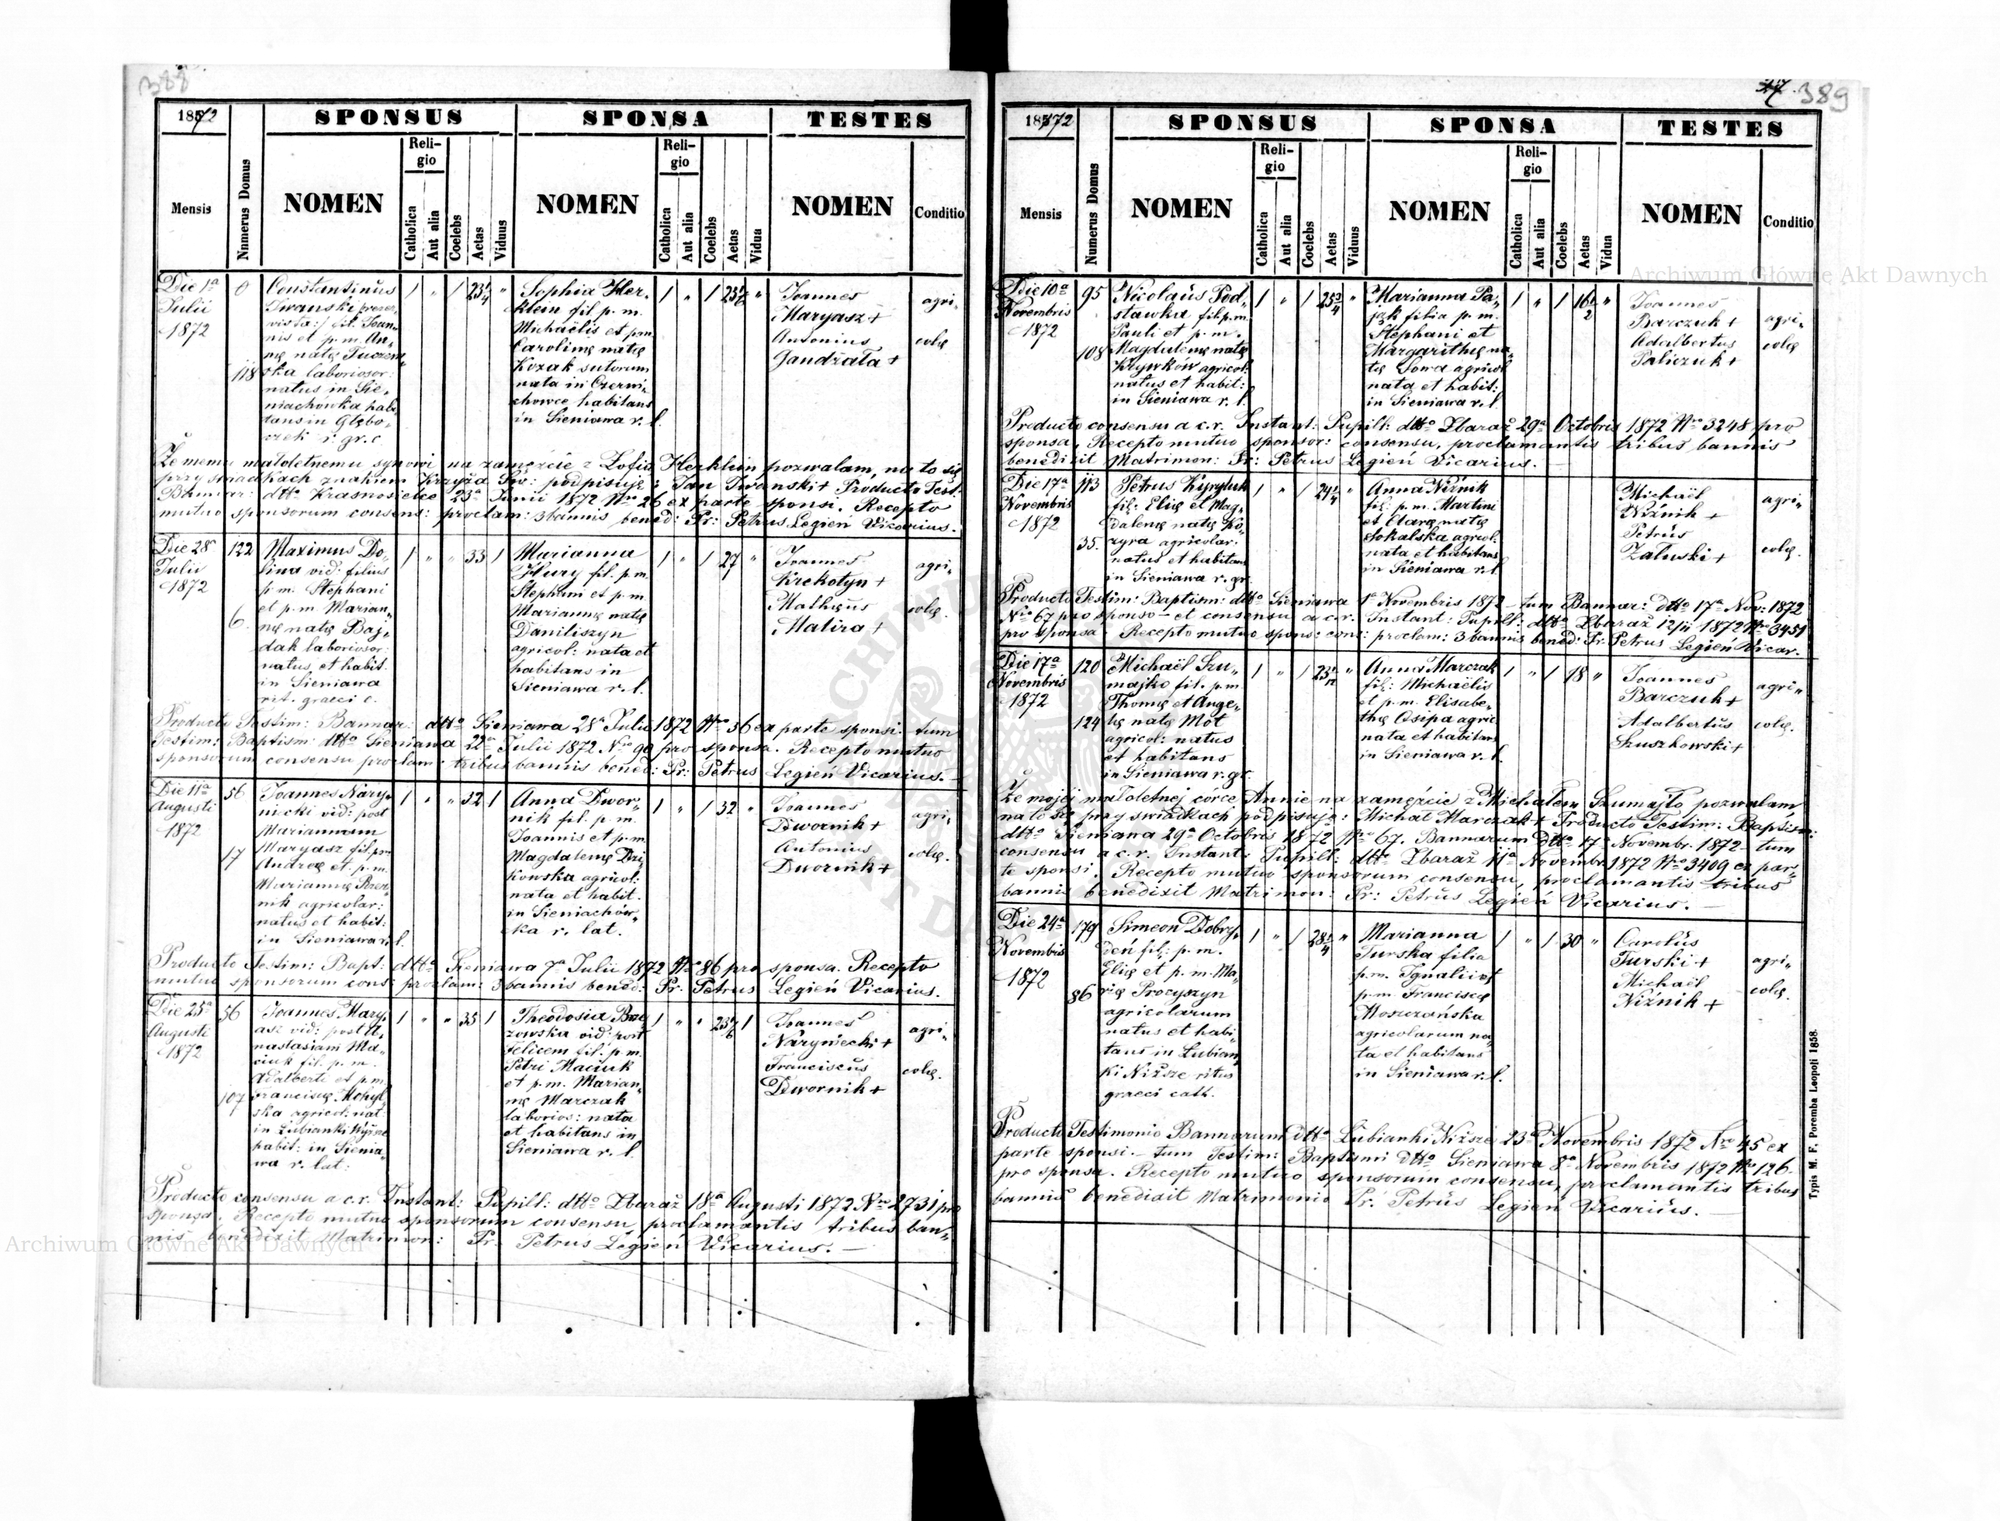 388
1872
SPONSUS
SPONSA
TESTES
Mensis
Numerus Domus
NOMEN
Religio
Catholica
Aut alia
Coelebs
Aetas
Viduus
NOMEN
Religio
Catholica
Aut alia
Coelebs
Aetas
Vidua
NOMEN
Conditio
Die 1a
Julii
1872
0
118
Constantinus
Iwanski
vista:/ fil. Joan-
nis et p.m. An-
nę natę
ska laboriosor:
natus in Sie-
niachówka habi-
tans in Głębo-
czek r. gr. c.
1 " 1 23 1/4 "
Sophia Her-
klein fil. p. m.
Michaëlis et p.m.
Carolinę natę
Kozak sutorum
nata in Czerni-
chowce habitans
in Sieniawa r. l.
1 " 1 "
Joannes
Maryasz +
Antonius
Jandzała +
agri-
colę
Że memu małoletnemu synowi na zamęźcie z Zofią Herklein pozwalam, na to się
przy świadkach znakiem Krzyża Św: podpisuję: Jan Iwanski + Producto Test.
Bannar: dtto Krasnosielce 23a Junii 1872 Nro 26 ex parte sponsi. Recepto
mutuo sponsorum consens: proclam: 3 bannis bened: Pr: Petrus Legień Vicarius.
Die 28a
Julii
1872
122
6.
Maximus Do-
lina vid: filius
p. m. Stephani
et p. m. Marian-
nę natę Baj-
dak laboriosor:
natus et habit.
in Sieniawa
rit. graeci c.
1 " " 33 1
Marianna
Hury fil. p. m.
Stephani et p.m.
Mariannę natę
Daniliszyn
agricol: nata et
habitans in
Sieniawa r. l.
1 " 1 27 "
Joannes
Krekotyn +
Mathęus
Matira +
agri-
colę.
Producto Testim: Bannar: dtto Sieniawa 28a Julii 1872 Nro 36 ex parte sponsi. tum
Testim: Baptism: dtto Sieniawa 22a Julii 1872 Nro 90 pro sponsa. Recepto mutuo
sponsorum consensu proclam: tribus bannis bened: Pr: Petrus Legień Vicarius.
Die 11a
Augusti
1872
56
17
Joannes Nary-
nicki vid: post
Mariannam
Maryasz fil. p.m.
Andreę et p. m.
Mariannę
nik agricolar:
natus et habit.
in Sieniawa r. l.
1 " " 32 1
Anna Dwor-
nik fil. p. m.
Joannis et p.m.
Magdalenę Dzi-
kowska agricol:
nata et habit.
in Sieniachów-
ka r. lat.
1 " 1 32 "
Joannes
Dwornik +
Antonius
Dwornik +
agri-
colę.
Producto Testim: Bapt: dtto Sieniawa 7a Julii 1872 Nro 86 pro sponsa. Recepto
mutuo sponsorum cons: proclam: 3 bannis bened: Pr: Petrus Legień Vicarius.
Die 25a
Augusti
1872
56
107
Joannes Mary-
asz vid: post A-
nastasiam Ma-
ciuk fil. p. m.
Adalberti et p.m.
Franciscę Mohyl-
ska agricol: nat:
in Łubianki Wyższe
habit: in Sienia-
wa r. lat:
1 " " 35 1
Theodosia Brze-
zowska vid: post
Felicem fil. p. m.
Petri Maciuk
et p. m. Marian-
nę Marczak
laborios: nata
et habitans in
Sieniawa r. l.
1 " " 1
Joannes
Naryniecki +
Franciscus
Dwornik +
agri-
colę.
Producto consensu a c.r. Instant: Pupill: dtto Zbaraż 18a Augusti 1872 Nro 2731 pro
sponsa. Recepto mutuo sponsorum consensu proclamantis tribus ban-
nis benedixit Matrimon: Pr: Petrus Legień Vicarius.
389
1872
SPONSUS
SPONSA
TESTES
Mensis
Numerus Domus
NOMEN
Religio
Catholica
Aut alia
Coelebs
Aetas
Viduus
NOMEN
Religio
Catholica
Aut alia
Coelebs
Aetas
Vidua
NOMEN
Conditio
Die 10a
Novembris
1872
95
108
Nicolaüs Pod-
stawka fil p.m.
Pauli et p. m.
Magdalenę natę
Krywków agricol:
natus et habit:
in Sieniawa r. l.
1 " 1 25 3/4 "
Marianna Pa-
jąk filia p. m.
Stephani et
Margarithę na-
tę Sowa agricol
nata et habit:
in Sieniawa r. l.
1 " 1 16 1/2 "
Joannes
Barczuk +
Adalbertus
Paliczuk +
agri-
colę
Producto consensu a c.r. Instant: Pupill: dtto Zbaraż 29a Octobris 1872 Nro 3248 pro
sponsa. Recepto mutuo sponsor: consensu, proclamantis tribus bannis
benedixit Matrimon: Pr: Petrus Legień Vicarius.
Die 17a
Novembris
1872
113
35.
Petrus Kyryluk
fil: Elię et Mag-
dalenę natę Ko-
zyra agricolar.
natus et habitans
in Sieniawa r. gr.
1 " 1 24 1/4 "
Anna Niżnik
fil: p.m. Martini
et Clarę natę
Sokalska agricol:
nata et habitans
in Sieniawa r. l.
Michaël
Niżnik +
Petrüs
Załuski +
agri-
colę.
Producto Testim: Baptism: dtto Sieniawa 1a Novembris 1872 – tum Bannar: dtto 17a Nov: 1872
Nro 67 pro sponso – et consensu a c.r. Instant: Pupill: dtto Zbaraż 12/11 1872 Nro 3451
pro sponsa. Recepto mutuo spons: cons: proclam: 3 bannis bened: Pr: Petrus Legień Vicar.
Die 17a
Novembris
1872
120
124
Michaël Szu-
majło fil. p.m.
Thomę et Ange-
lę natę Mot
agricol: natus
et habitans
in Sieniawa r. gr.
1 " 1 "
Anna Marczak
fil: Michaëlis
et p. m. Elisabe-
thę Osipa agric
nata et habitans
in Sieniawa r. l.
1 " 1 18 "
Joannes
Barczuk +
Adalbertüs
Szuszkowski +
agri-
colę.
Że mojej małoletnej córce Annie na zamęźcie z Michałem Szumajło pozwalam
na to się przy świadkach podpisuję: Michał Marczak + Producto Testim: Baptism:
dtto Sieniawa 29a Octobris 1872 Nro 67. Bannarum dtto 17a Novembr. 1872 – tum
consensu a c.r. Instant: Pupill: dtto Zbaraż Novembr. 1872 Nro 3409 ex par-
te sponsi. Recepto mutuo sponsorum consensu, proclamantis tribus
bannis benedixit Matrimon: Pr: Petrüs Legień Vicarius.
Die 24a
Novembris
1872
179
86
Simeon Dobry-
deń fil: p. m.
Elię et p. m. Ma-
rię Procyszyn
agricolarum
natus et habi-
tans in Łubian-
ki Niższe ritus
graeci cath.
1 " 1 28 1/4 "
Marianna
Turska filia
p.m. Ignatii et
p.m. Franciscę
Moszczańska
agricolarum na-
ta et habitans
in Sieniawa r. l.
1 " 1 30 "
Carolüs
Turski +
Michaël
Niżnik +
agri-
colę.
Producto Testimonio Bannorum dtto Łubianki Niższe 23a Novembris 1872 Nro 45 ex
parte sponsi. – tum Testim: Baptismi dtto Sieniawa 8a Novembris 1872 Nro 126
pro sponsa. Recepto mutuo sponsorum consensu, proclamantis tribus
bannis benedixit Matrimonio Pr: Petrüs Legień Vicariüs.
Typis M. F. Poremba Leopoli 1858.
Archiwum Główne Akt Dawnych
Archiwum Główne Akt Dawnych